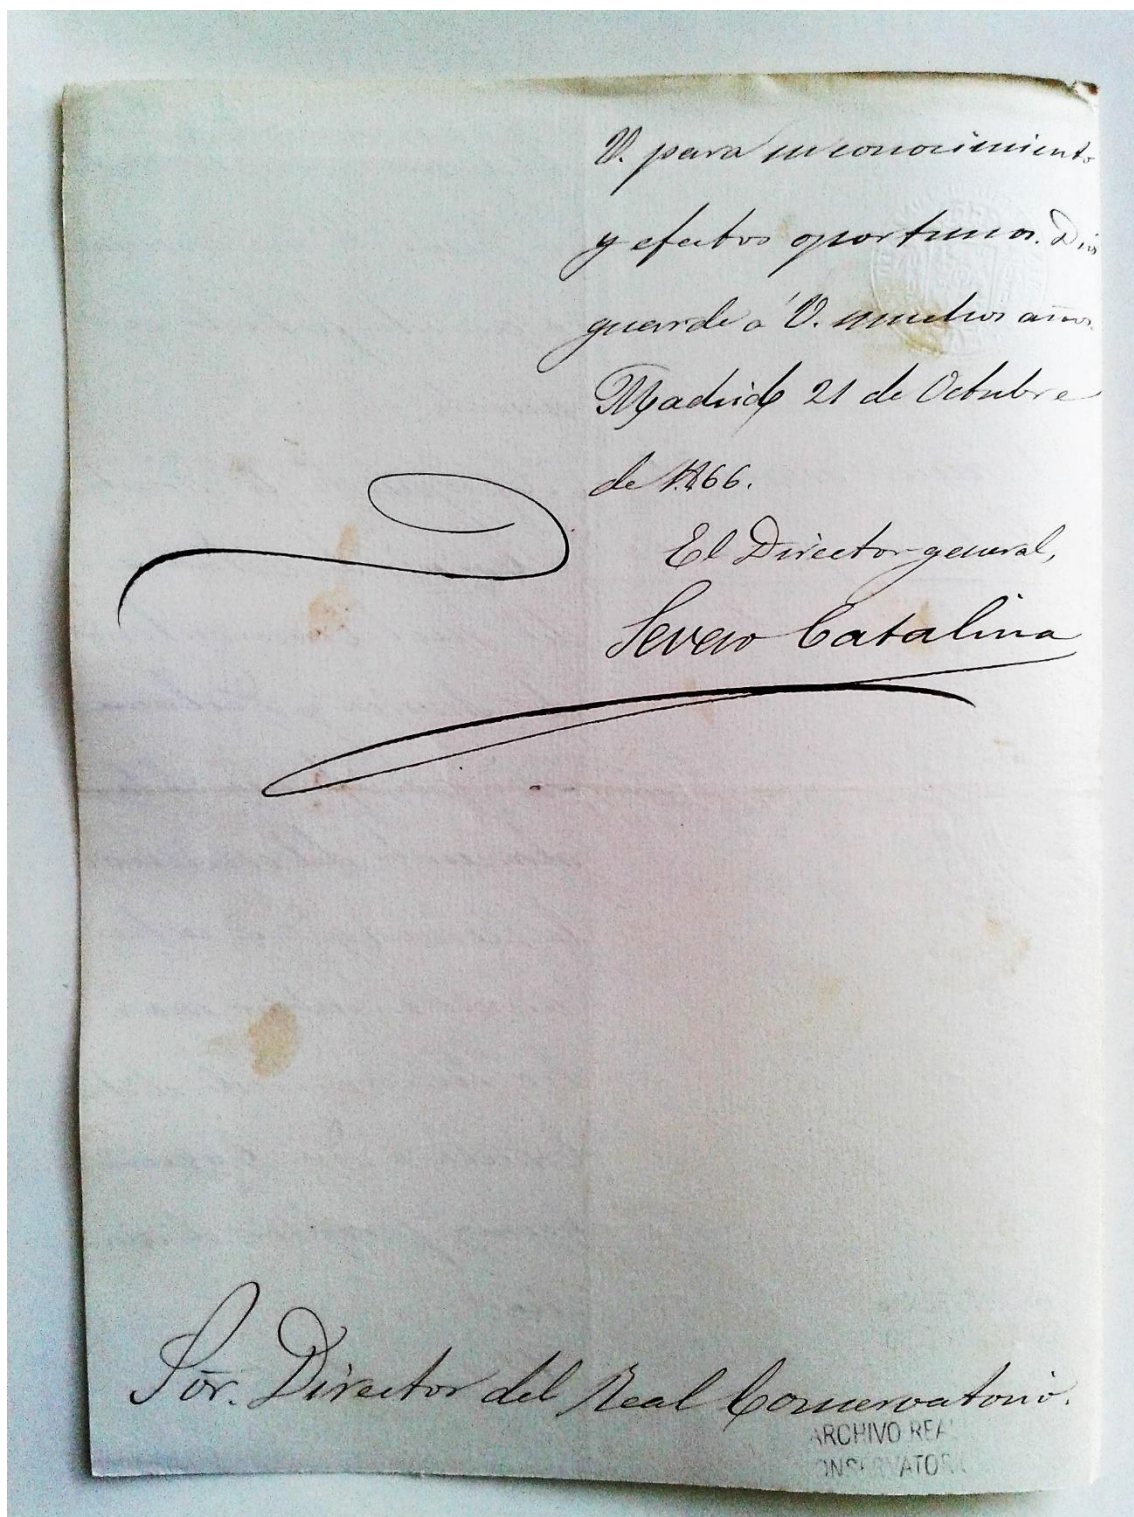 V. para su conocimiento
y efectos oportunos. Dios
guarde á V. muchos años.
Madrid 21 de Octubre
de 1866.
El Director general,
Severo Catalina
Sor. Director del Real Conservatorio.
ARCHIVO REAL
CONSERVATORIO